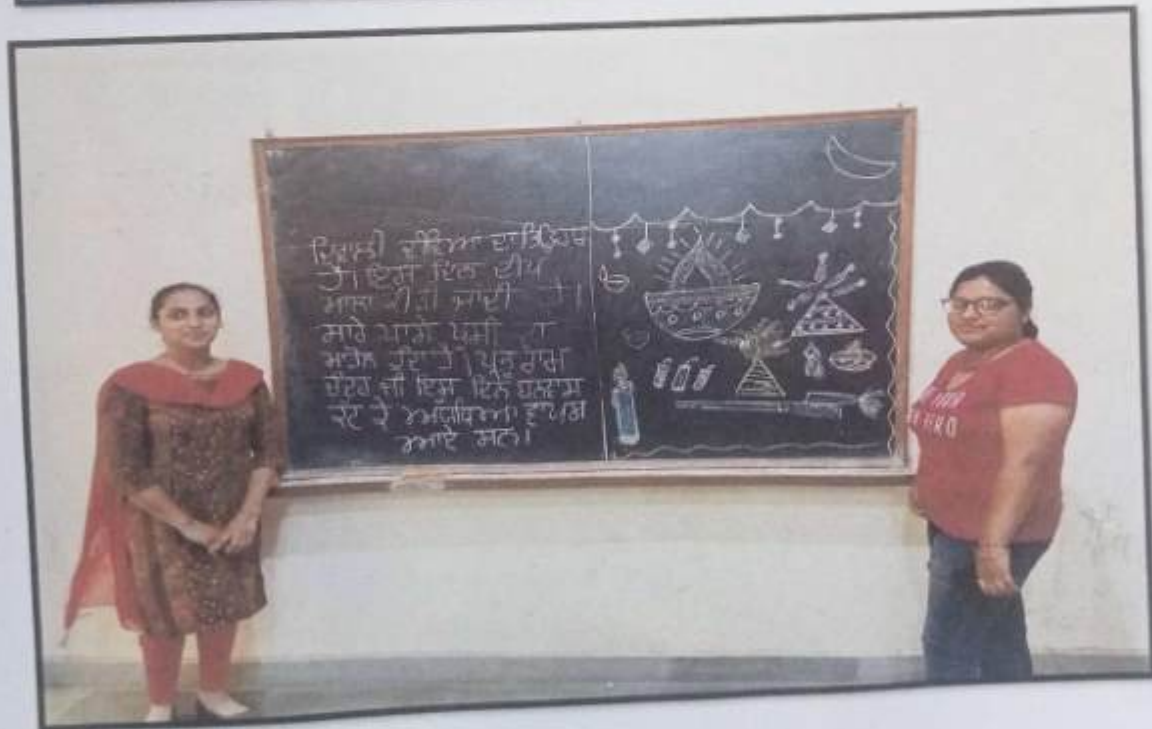 ਦਿਵਾਲੀ ਦੀਵਿਆ ਦਾ ਤਿਉਹਾਰ
ਹੈ। ਇਸ ਦਿਨ ਦੀਪ
ਮਾਲਾ ਕੀਤੀ ਜਾਂਦੀ ਹੈ।
ਸਾਰੇ ਪਾਸੇ ਖੁਸ਼ੀ ਦਾ
ਮਾਹੌਲ ਹੁੰਦਾ ਹੈ। ਪ੍ਰਭੂ ਰਾਮ
ਚੰਦਰ ਜੀ ਇਸ ਦਿਨ ਬਨਵਾਸ
ਕਟ ਕੇ ਅਯੁੱਧਿਆ ਵਾਪਸ
ਆਏ ਸਨ।